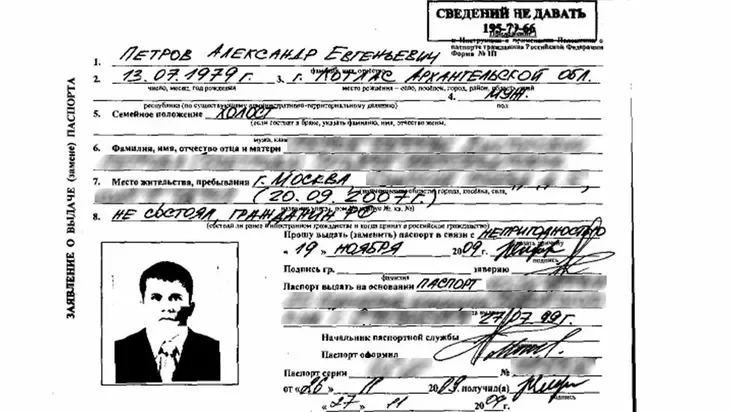 СВЕДЕНИЙ НЕ ДАВАТЬ
195-79-66
паспорте гражданина Российской Федерации
Форма № 1П
ЗАЯВЛЕНИЕ О ВЫДАЧЕ (замене) ПАСПОРТА
1. ПЕТРОВ АЛЕКСАНДР ЕВГЕНЬЕВИЧ
2. 13.07.1979г. 3. г. КОТЛАС АРХАНГЕЛЬСКОЙ ОБЛ.
число, месяц, год рождения место рождения — село, посёлок, город, район,
4. МУЖ.
республика (по существующему административно-территориальному делению) пол
5. Семейное положение ХОЛОСТ
(если состоит в браке, указать фамилию, имя, отчество жены,
мужа,
6. Фамилия, имя, отчество отца и матери
7. Место жительства, пребывания г. МОСКВА
области города, посёлка, села,
(20.09.2007г.)
8. НЕ СОСТОЯЛ, ГРАЖДАНИН РФ
(состоял ли ранее в иностранном гражданстве и когда принят в российское гражданство)
Прошу выдать (заменить) паспорт в связи с НЕПРИГОДНОСТЬЮ
« 19 » НОЯБРЯ 2009г.
подпись
Подпись гр. заверяю
фамилия
подпись
Паспорт выдать на основании ПАСПОРТ
27.07.99г.
Начальник паспортной службы
Паспорт оформил
Паспорт серии №
от «26» 11 2009. получил(а)
подпись
«27» 11 2009г.